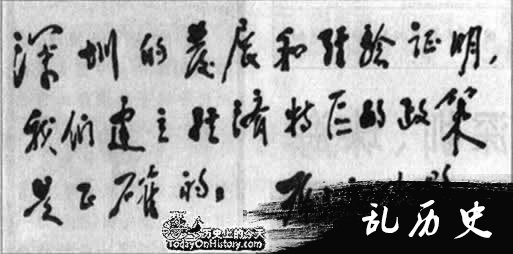 深圳的发展和经验证明，
我们建立经济特区的政策
是正确的。
历史上的今天
TodayOnHistory.com
乱历史